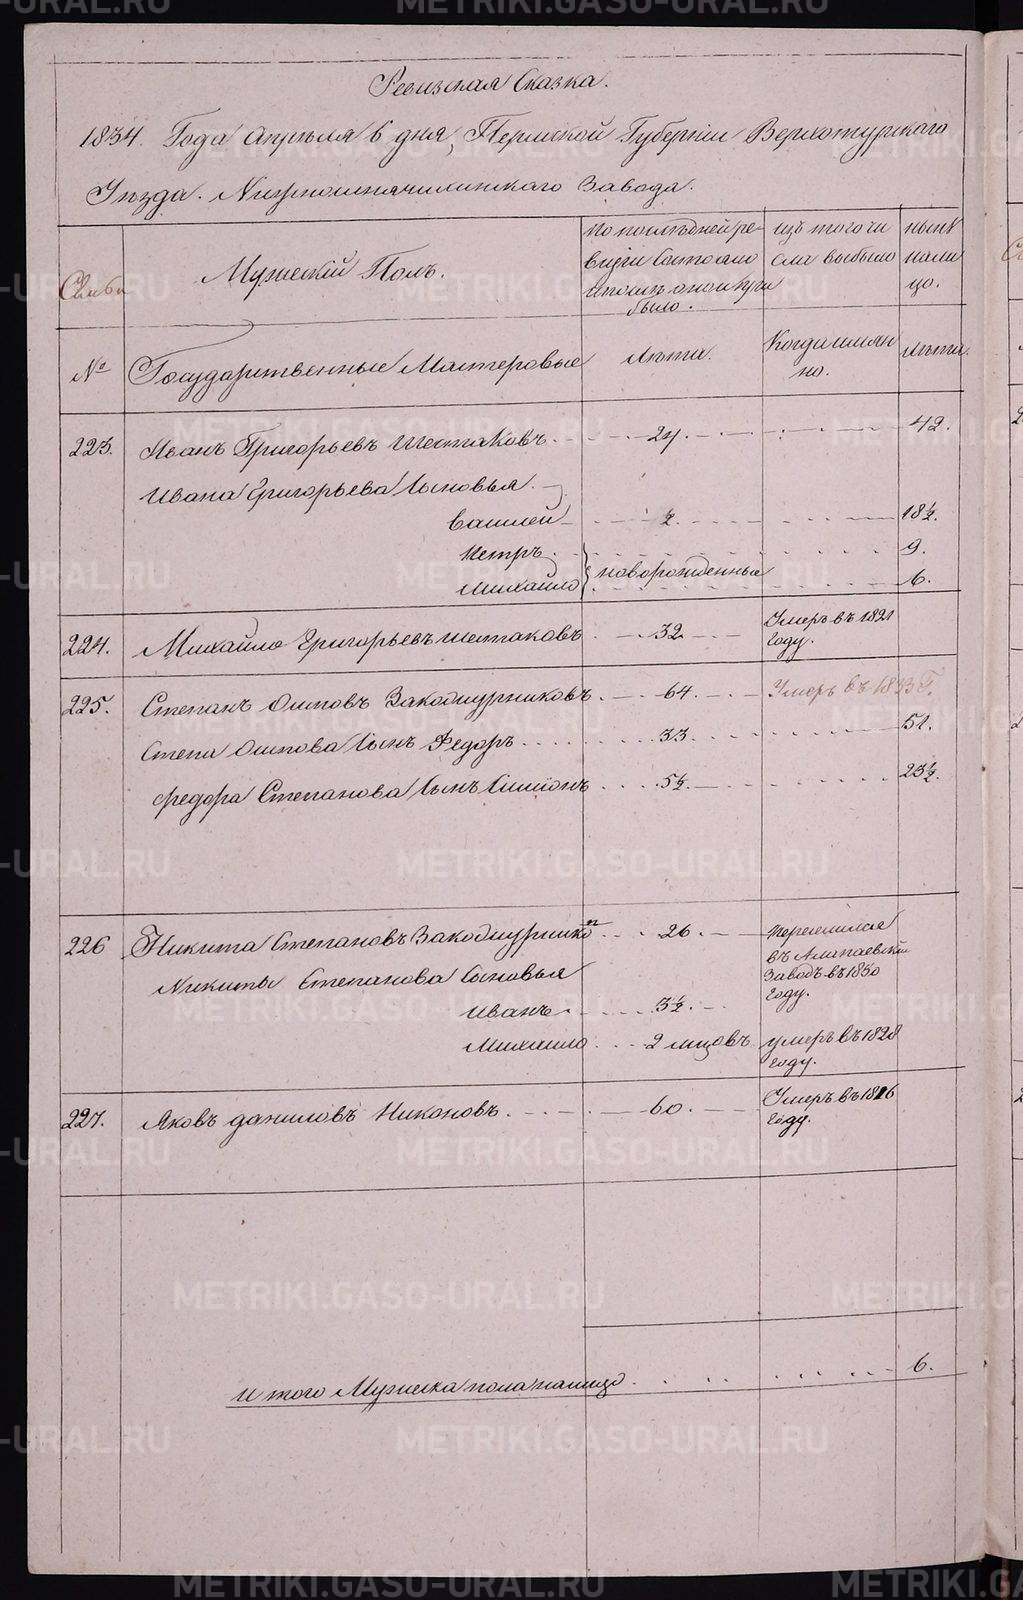 Ревизская Сказка.
1834. Года Апреля 6 дня, Пермской Губернии Верхотурскаго
Уезда. Завода.
Семьи
Мужеский Полъ.
По последней ре-
визии состояло
и после оной
было.
изъ того чи
сла выбыло
ныне
нали
цо.
№
Государственные Мастеровые
Лета.
Когда имян
но.
Лета.
223. Иванъ Григорьевъ Шестаковъ 24. 42.
Ивана Григорьева Сыновья
Василей ½ 18½.
Петръ 9.
Михайло новорожденные 6.
224. Михайло Григорьевъ Шестаковъ 32 Умеръ въ 1821
году.
225. Степанъ Осиповъ Закожурниковъ 64. Умеръ въ 1833 Г.
Степа Осипова Сынъ Федоръ 33. 51.
Федора Степанова Сынъ Симионъ 5½. 23½.
226 Никита Степановъ 26. переселился
въ Алапаевский
Заводъ въ 1830
году.
Никиты Степанова Сыновья
Иванъ 3½.
Михайло 2 месцовъ умеръ въ 1828
году.
227. Яковъ Даниловъ Никоновъ 60. Умеръ въ 1826
году.
итого Мужеска пола налицо 6.
METRIKI.GASO-URAL.RU